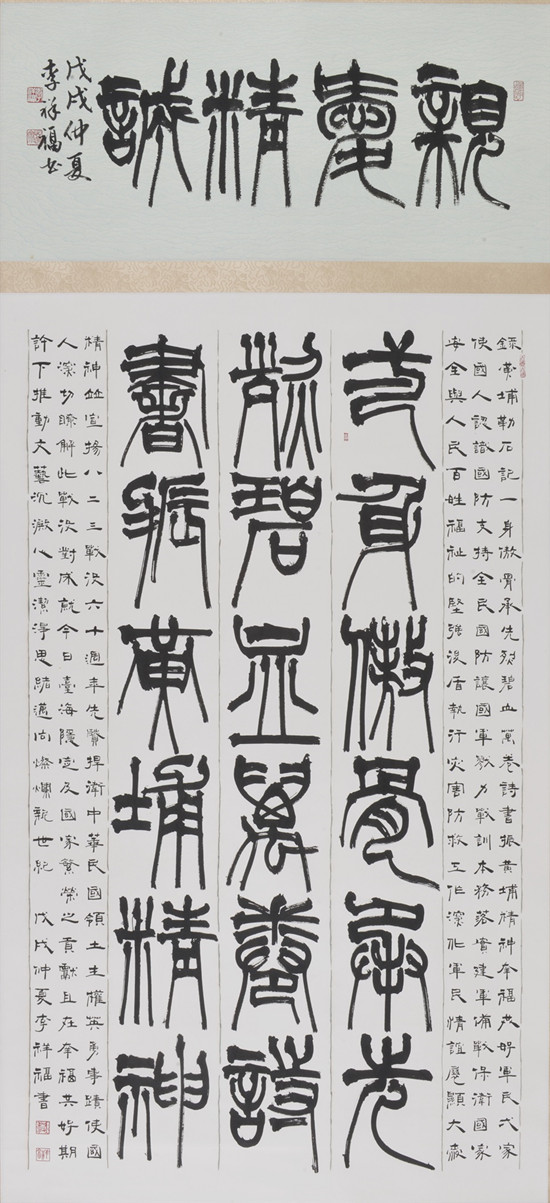 親愛精誠
戊戌仲夏
李祥福書
錄黃埔勒石記一身傲骨承先烈碧血萬卷詩書振黃埔精神幸福共好軍民弌家
使國人認識國防支持全民國防讓國軍戮力戰訓本務落實建軍備戰保衛國家
安全與人民百姓福祉的堅強後盾執行災害防救工作深化軍民情誼顯大
弌身傲骨承先
烈碧血萬卷詩
書振黃埔精神
精神並宣揚八二三戰役六十週年先賢捍衛中華民國領土主權英勇事蹟使國
人深切瞭解此戰役對成就今日臺海穩定及國家繁榮之貢獻且在幸福共好期
許下推動文藝沉澱心靈潔淨思緒邁向燦爛新世紀 戊戌仲夏李祥福書